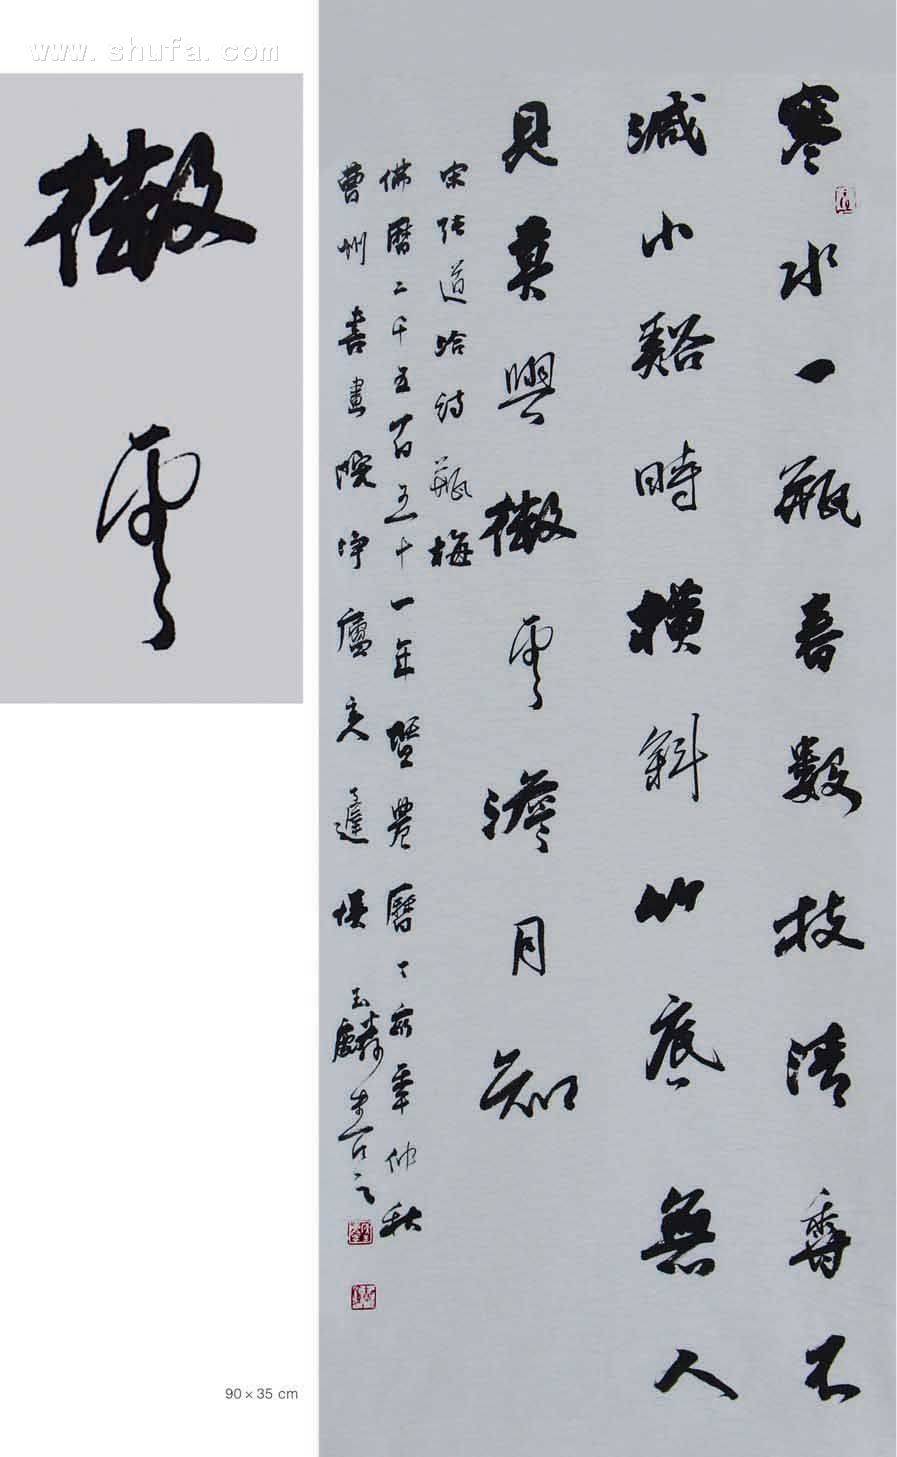 www.shufa.com
微
雲
寒水一瓶春數枝清香不
減小谿時橫斜竹底無人
見莫與微雲澹月知
宋張道洽詩瓶梅
佛曆二千五百五十一年暨農曆丁亥年仲秋
曹州書畫院廬玉麟書之
90 × 35 cm